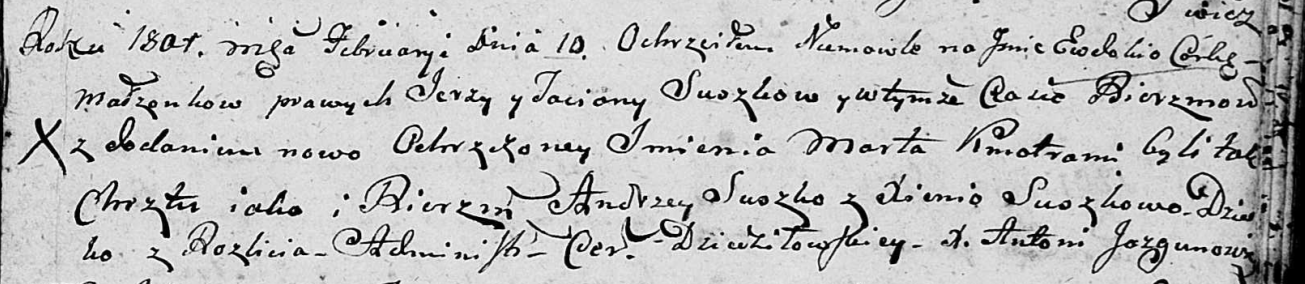 wicz
Roku 1801. mśca Februaryi Dnia 10. Ochrzciłem Niemowle na Jmie Ewdokio Córkę
Małżonkow prawych Jerzy y Taciany Suszkow y wtymże Czasie Bierzmow
X z dodaniem nowo Ochrzczoney Jmienia Marta Kmotrami byli tak
Chrztu iako i Bierzm Andrzey Suszko z Xienią Suszkowo Dziec
ko z Rozlicia Administr Cer. Dziedziłowskiey X. Antoni Jazgunowi